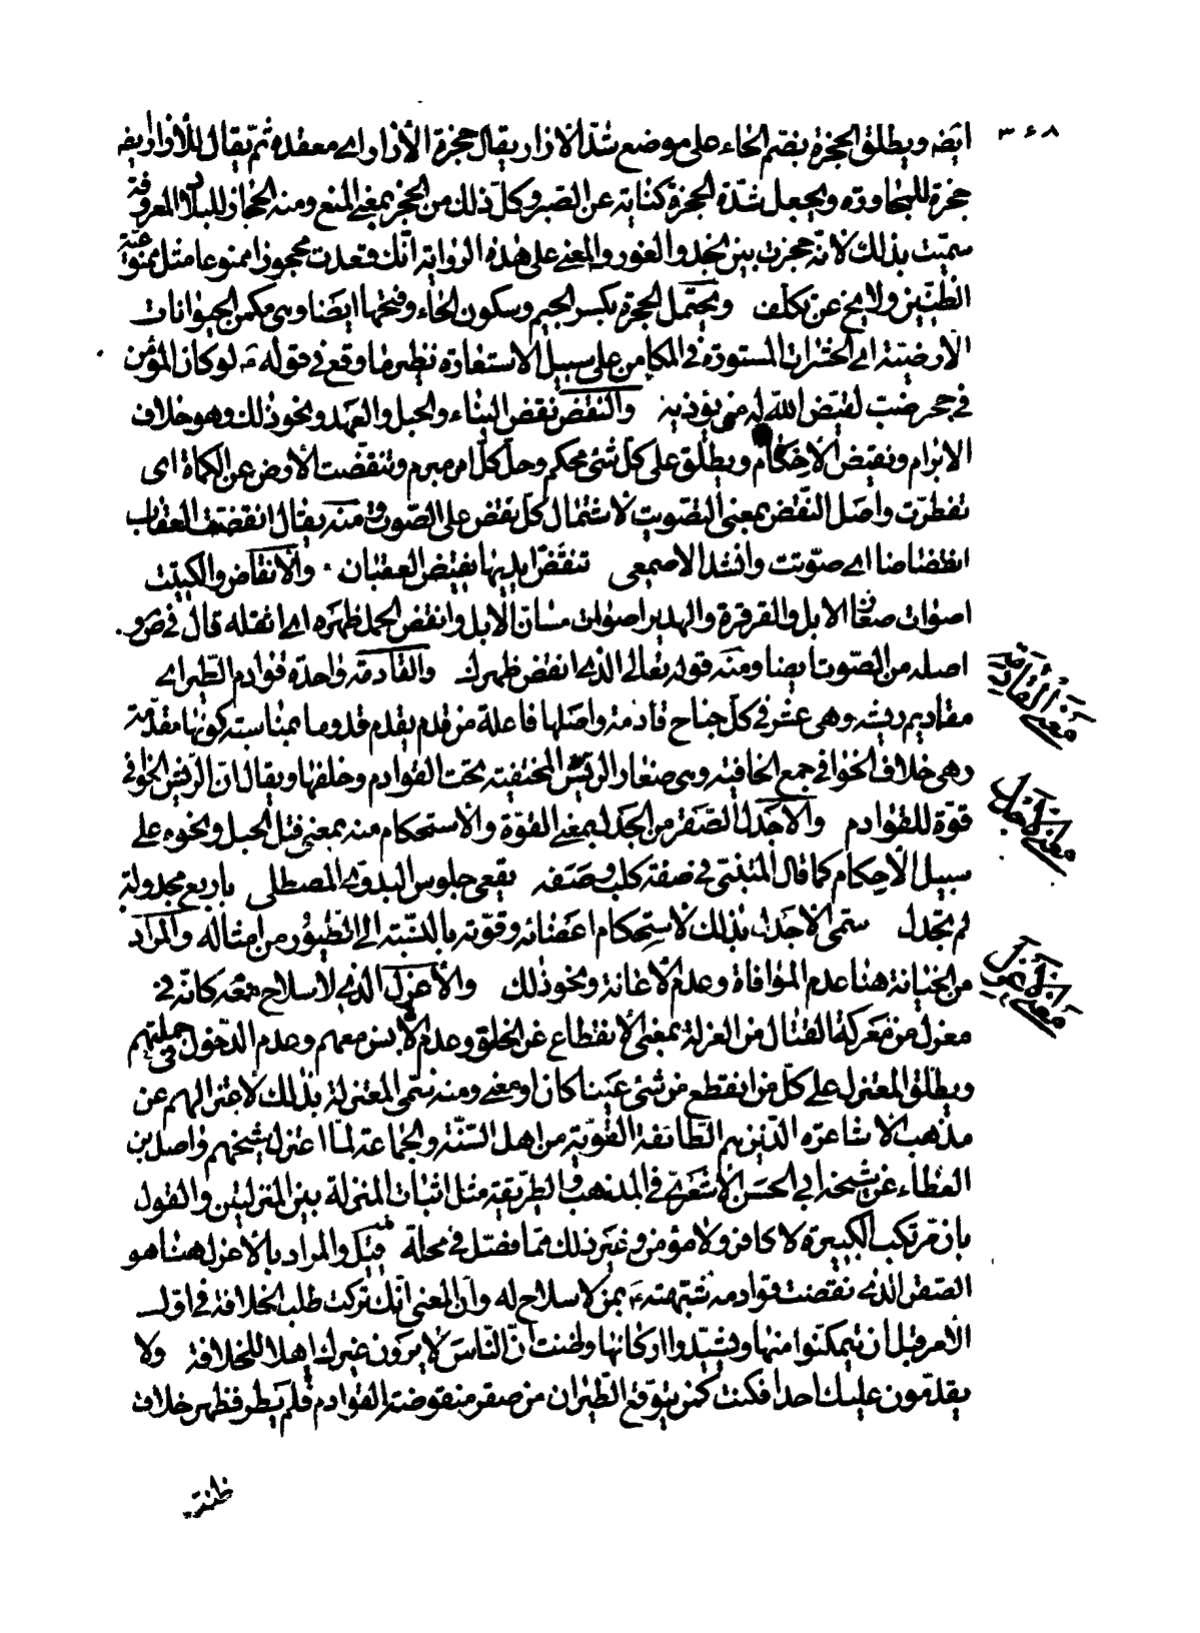 ٣٦٨
ايضه ويطلق الحجزة بضم الحاء على موضع شدّ الازار يقال حجزة الازار اے معقده ثمّ يقال للازار ايضه
حجزة للمجاورة ويجعل شدّة الحجزة كناية عن الصبر وكلّ ذلك من الحجز بمعنى المنع ومنه الحجاز للبلاد المعروفة
سمّيت بذلك لانّه حجزت بين نجد والغور والمعنى على هذه الرواية انّك قعدت محجوزا ممنوعا مثل ممنوعيّة
الظنين ولا يخ عن تكلّف ويحتمل الجحرة بكسر الجيم وسكون الحاء وفتحها ايضا وهى مكمن الحيوانات
الارضيّة اے الحشرات المستورة فى المكامن على سبيل الاستعارة نظير ما وقع فى قوله لو كان المؤمن
فى جحر ضب لقيّض اللّه له من يؤذيه والنقض نقض البناء والحبل والعهد ونحو ذلك وهو خلاف
الابرام ونقيض الاحكام ويطلق على كلّ شئ محكم وحلّ كلّ امر مبرم وتنقّضت الارض عن الكماة اى
تفطّرت واصل النّقض بمعنى التصويت لاشتمال كلّ نقض على الصّوت ومنه يقال انقضت العقاب
انقضاضا اے صوّتت وانشد الاصمعى تنقض ايديها نقيض العقبان . والانقاض والكتيت
اصوات صغار الابل والقرقرة والهدير اصوات مسانّ الابل وانقض الحمل ظهره اے اثقله قال فى ص و.
اصله من الصّوت ايضا ومنه قوله تعالى الذى انقض ظهرك والقادمة واحدة قوادم الطير اے
مقاديم ريشه وهى عشر فى كلّ جناح قادمة واصلها فاعلة من قدم يقدم قدوما بمناسبة كونها مقدّمة
وهى خلاف الخوافى جمع الخافية وهى صغار الريش المختفية تحت القوادم وخلفها ويقال انّ الريش الخوافى
قوّة للقوادم والاجدل الصّقر من الجدل بمعنى القوّة والاستحكام منه بمعنى فتل الحبل ونحوه على
سبيل الاحكام كما قال المتنبّى فى صفة كلب وصفه يقعى جلوس البدوى المصطلى باربع مجدولة
لم تجدل سمّى الاجدل بذلك لاستحكام اعضائه وقوّته بالنسبة الى الطيور من امثاله والمراد
من الخيانة هنا عدم الموافاة وعدم الاعانة ونحو ذلك والاعزل الذى لاسلاح معه كانّه فى
معزل من معركة القتال من العزلة بمعنى الانقطاع عن الخلق وعدم الانس معهم وعدم الدّخول فى جملتهم
ويطلق المعتزل على كلّ من انقطع من شئ عينا كان او معنى ومنه سمّى المعتزلة بذلك لاعتزالهم عن
مذهب الاشاعرة الذين هم الطائفة القويّة من اهل السّنّة والجماعة لمّا اعتزل شيخهم واصل بن
العطاء عن شيخه ابى الحسن الاشعرى فى المذهب والطريقة مثل اثبات المنزلة بين المنزلتين والقول
بان مرتكب الكبيرة لا كافر ولا مؤمن وغير ذلك ممّا فصّل فى محلّه قيل والمراد بالاعزل هنا هو
الصقر الذى نقضت قوادمه شبّهته بمن لاسلاح له وانّ المعنى انّك تركت طلب الخلافة فى اوّل
الامر قبل ان يتمكّنوا منها ويشيّدوا اركانها وظننت انّ النّاس لا يرون غيرك اهلا للخلافة ولا
يقدّمون عليك احدا فكنت كمن يتوقّع الطيران من صقر منقوضة القوادم فلم يطر فظهر خلاف
ظنّه
معنى القادمة
معنى الاجدل
معنى الاعزل